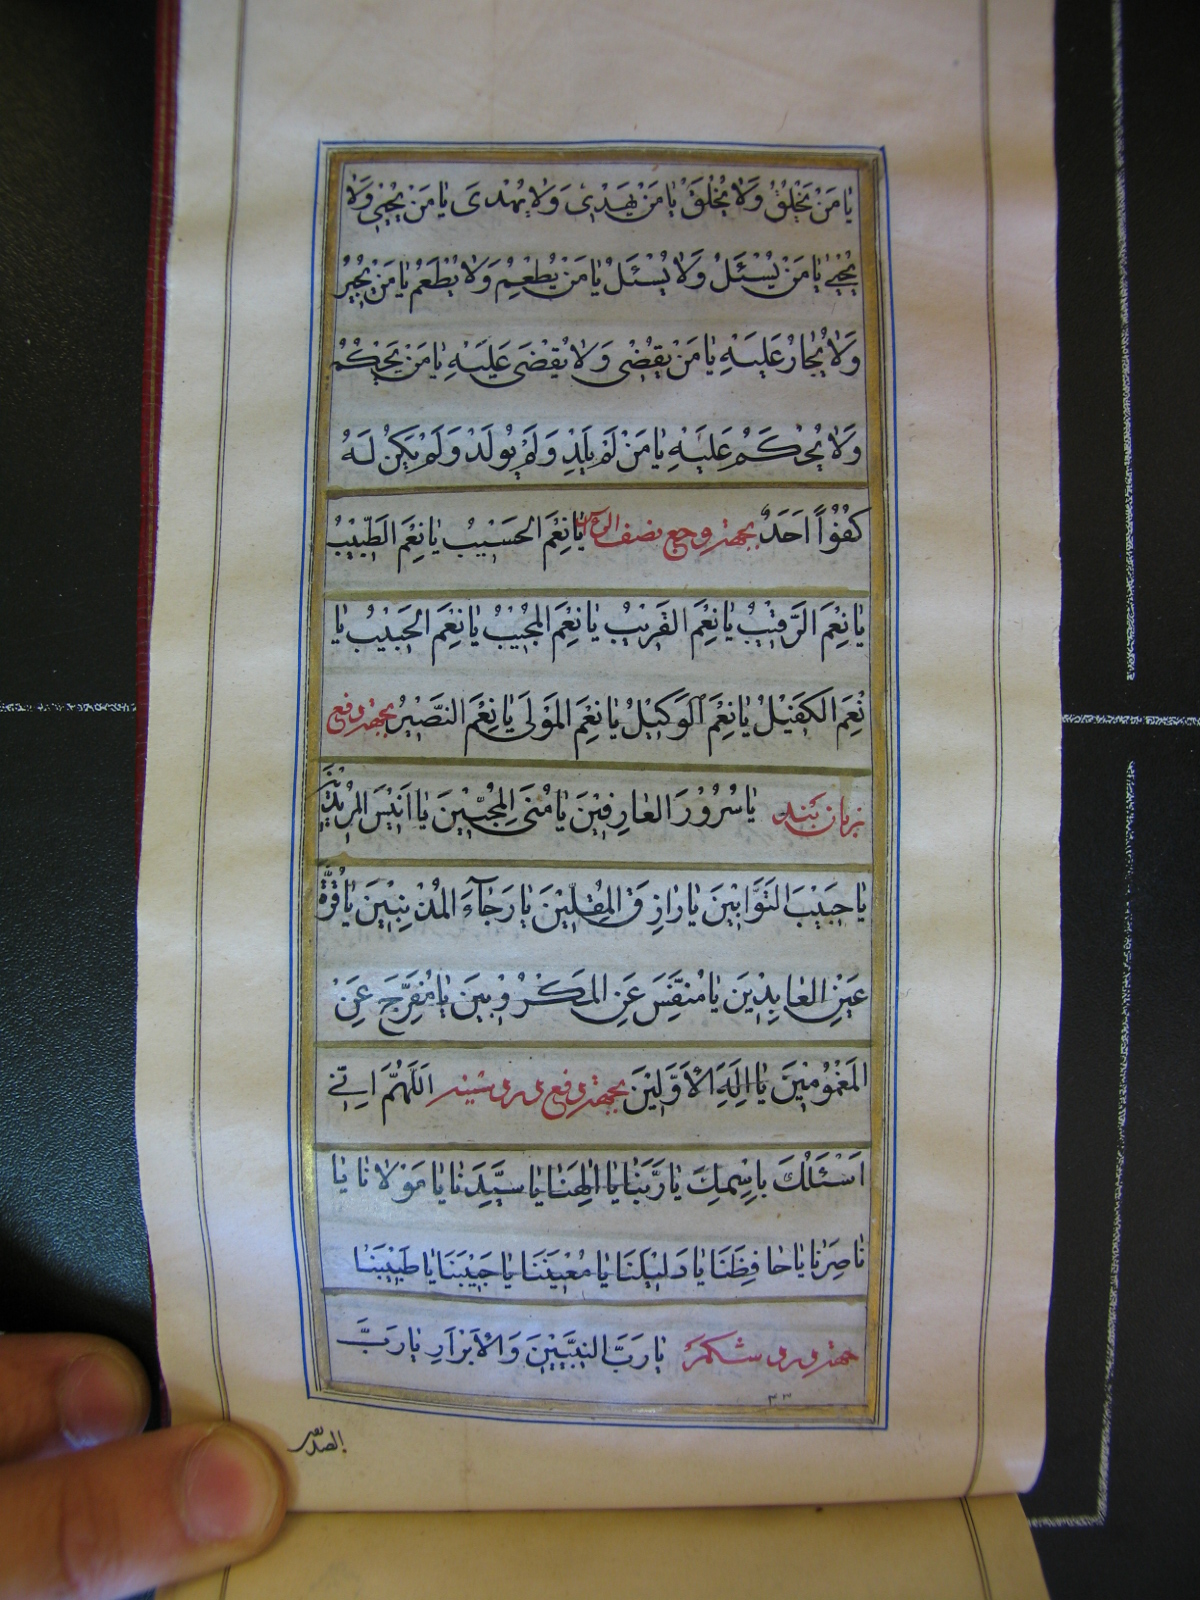 يٰا مَنْ يَخْلُقُ وَلٰا يُخْلَقُ يٰا مَنْ يَهْدِىْ وَلٰا يُهْدىَ يٰا مَنْ يُحْيِىْ وَلٰا
يُحْيىٰ يٰا مَنْ يَسْئَلُ وَلٰا يُسْئَلُ يٰا مَنْ يُطْعِمُ وَلٰا يُطْعَمُ يٰا مَنْ يُجيْرُ
وَلٰا يُجٰارُ عَلَيْهِ يٰا مَنْ يَقْضْىِ وَلٰا يُقْضىَ عَلَيْهِ يٰا مَنْ يَحْكُمُ
وَلٰا يُحْكَمُ عَلَيْهِ يٰا مَنْ لَمْ يَلِدْ وَلَمْ يُولَدْ وَلَمْ يَكُنْ لَهُ
كُفُوْاً اَحَدٌ بجهتر وجع نصف الرأس يٰا نِعْمَ الحَسْيِبُ يٰا نِعْمَ الطَّبْيِبُ
يٰا نِعْمَ الرَّقْيِبُ يٰا نِعْمَ القَرْيِبُ يٰا نِعْمَ المُجْيِبُ يٰا نِعْمَ الحَبْيِبُ يٰا
نِعْمَ الكَفْيِلُ يٰا نِعْمَ الوَكْيِلُ يٰا نِعْمَ المَوْلىَ يٰا نِعْمَ النَّصْيِرُ بجهتر دفع
زبان بند يٰا سُرُوْرَ العٰارِفْيِنَ يٰا مُنىَ المُحِبّْيِنَ يٰا اَنْيِسَ المُرْيِدْيِنَ
يٰا حَبْيِبَ التَوَّابْيِنَ يٰا رٰازِقَ المُقِلّْيِنَ يٰا رَجٰآءَ المُذْنِبْيِنَ يٰا قُرَّةَ
عَيْنِ العٰابِدْيِنَ يٰا مُنَفِّسَ عَنِ المَكْرُوْبْيِنَ يٰا مُفَرِّجَ عَنِ
المَغْمُوْمْيِنَ يٰا اِلَهَ الاَوَّلْيِنَ بجهتر دفع درد سينه اَللّهُمَّ اِنّىْ
اَسْئَلُكَ بِاسْمِكَ يٰا رَبَّنٰا يٰا اِلَهِنٰا يٰا سَيِّدَنٰا يٰا مَوْلانٰا يٰا
نٰاصِرَنٰا يٰا حٰافِظَنٰا يٰا دَلْيِلَنٰا يٰا مُعْيِنَنٰا يٰا حَبْيِبَنٰا يٰا طَبْيِبَنٰا
جهتر درد شكم يٰا رَبَّ النَّبِيّْيِنَ وَالاَبْرٰارِ يٰا رَبَّ
٣٣
الصديقين